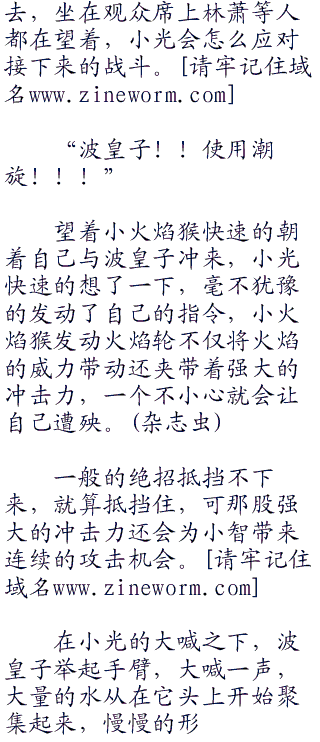 去，坐在观众席上林萧等人
都在望着，小光会怎么应对
接下来的战斗。[请牢记住域
名www.zineworm.com]
“波皇子！！使用潮
旋！！！”
望着小火焰猴快速的朝
着自己与波皇子冲来，小光
快速的想了一下，毫不犹豫
的发动了自己的指令，小火
焰猴发动火焰轮不仅将火焰
的威力带动还夹带着强大的
冲击力，一个不小心就会让
自己遭殃。(杂志虫)
一般的绝招抵挡不下
来，就算抵挡住，可那股强
大的冲击力还会为小智带来
连续的攻击机会。[请牢记住
域名www.zineworm.com]
在小光的大喊之下，波
皇子举起手臂，大喊一声，
大量的水从在它头上开始聚
集起来，慢慢的形